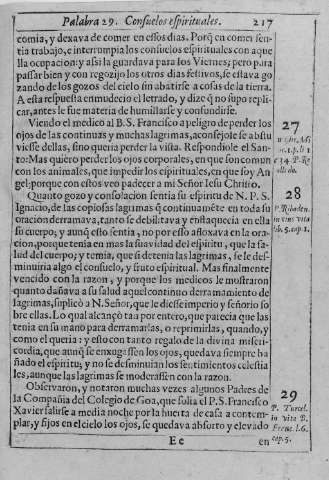 Palabra 29. Consuelos espirituales. 217
comia, y dexava de comer en essos dias. Porq̃ en comer sen-
tia trabajo, e interrompia los consuelos espirituales con aque
lla ocupacion: y assi la guardava para los Viernes; pero para
passar bien y con regozijo los otros dias festivos, se estava go
zando de los gozos del cielo sin abatirse a cosas de la tierra.
A esta respuesta enmudecio el letrado, y dize q̃ no supo repli-
car, antes le fue materia de humillarse y confundirse.
Viendo el medico al B.S. Francisco a peligro de perder los
ojos de las continuas y muchas lagrimas, aconsejole se abstu
viesse dellas, sino queria perder la vista. Respondiole el San-
to: Mas quiero perder los ojos corporales, en que son comun
con los animales, que impedir los espirituales, en que soy An
gel: porque con estos veo padecer a mi Señor Iesu Christo.
27
Quanto gozo y consolacion sentia su espiritu de N. P. S.
Ignacio, de las copiosas lagrimas q̃ continuamẽte en toda su
oracion derramava, tanto se debilitava y enflaquecia en ella
su cuerpo; y aunq̃ esto sentia, no por esso afloxava en la ora-
cion, porque tenia en mas la suavidad del espiritu, que la sa-
lud del cuerpo; y temia, que si detenia las lagrimas, se le des-
minuiria algo el consuelo, y fruto espiritual. Mas finalmente
vencido con la razon, y porque los medicos le mostraron
quanto dañava a su salud aquel continuo derramamiento de
lagrimas, suplicò a N. Señor, que le diesse imperio y señorio so
bre ellas. Lo qual alcançò tan por entero, que parecia que las
tenia en su mano para derramarlas, o reprimirlas, quando, y
como el queria: y esto con tanto regalo de la divina miseri-
cordia, que aunq̃ se enxugassen los ojos, quedava siempre ba
ñado el espiritu; y no se desminuian los sentimientos celestia
les, aunque las lagrimas se moderassen con la razon.
28
P. Ribaden.
in eius vita
lib. 5. cap. 1.
Observaron, y notaron muchas vezes algunos Padres de
la Compañia del Colegio de Goa, que solia el P.S. Francisco
Xavier salirse a media noche por la huerta de casa a contem-
plar, y fijos en el cielo los ojos, se quedava absorto y elevado
29
P. Tursel.
in vita B.
Franc. l. 6.
cap. 5.
Ee en